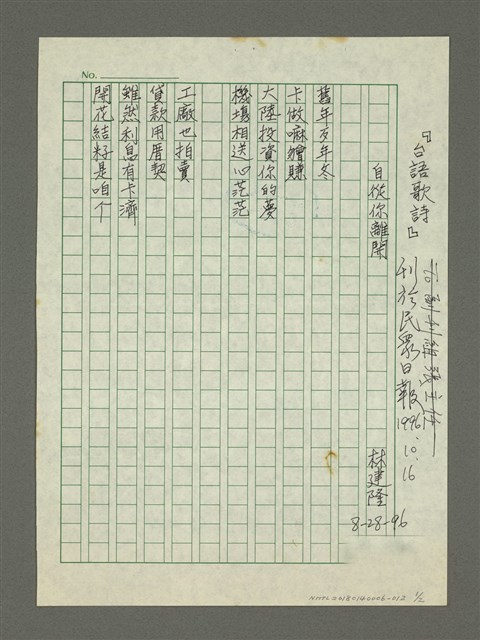 『台語歌詩』
刊於民眾日報1996.10.16
自從你離開
林建隆
8-28-96
舊年歹年冬
卡做嘛𣍐賺
大陸投資你的夢
機場相送心茫茫
工廠也拍賣
貸款用厝契
雖然利息有卡濟
開花結籽是咱个
No.
NMTL20180140006-012 1/2